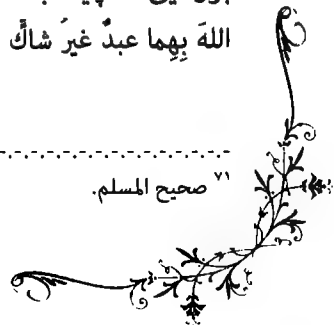 اللهَ بِهِما عبدٌ غيرُ شاكٍّ
٧١ صحيح المسلم.